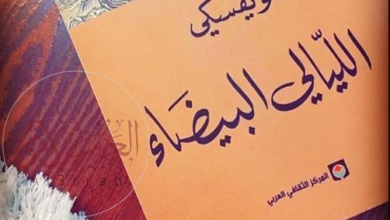 ويفسكي
اللّيالي البيضَاء
المركز الثقافي العربي